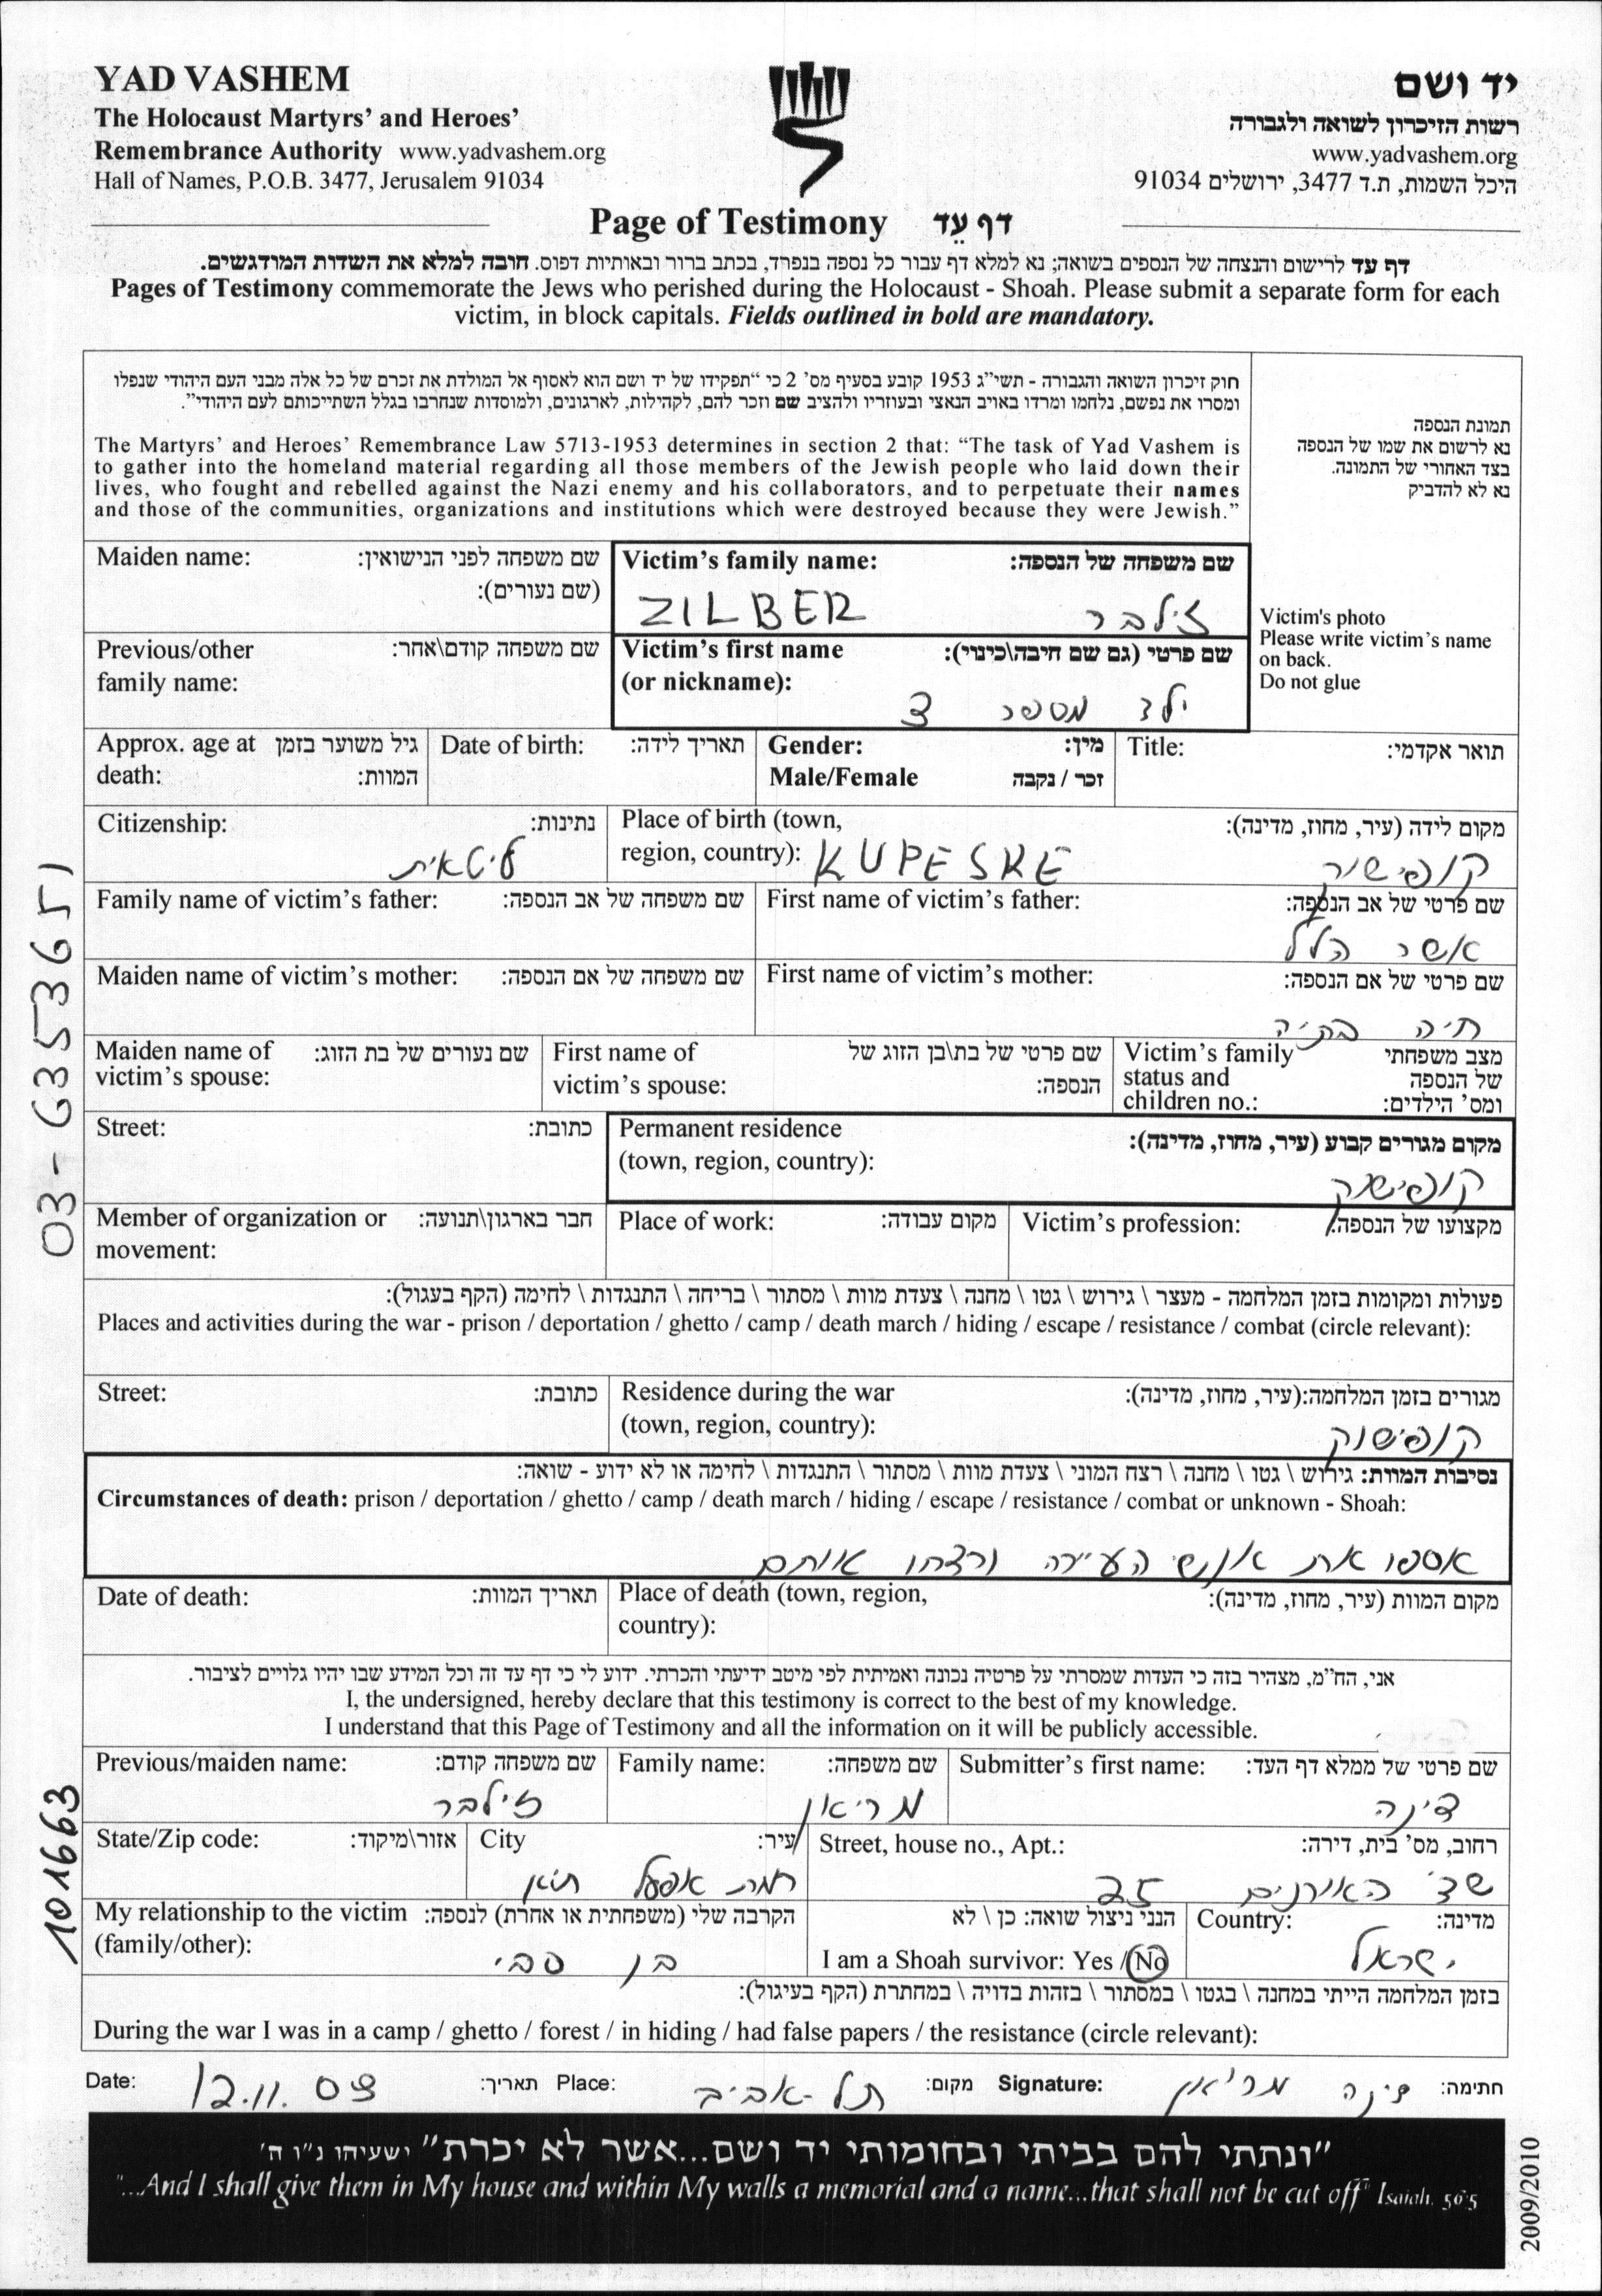 YAD VASHEM
The Holocaust Martyrs' and Heroes'
Remembrance Authority www.yadvashem.org
Hall of Names, P.O.B. 3477, Jerusalem 91034
יד ושם
רשות הזיכרון לשואה ולגבורה
www.yadvashem.org
היכל השמות, ת.ד 3477, ירושלים 91034
Page of Testimony דף עֵד
דף עד לרישום והנצחה של הנספים בשואה; נא למלא דף עבור כל נספה בנפרד, בכתב ברור ובאותיות דפוס. חובה למלא את השדות המודגשים.
Pages of Testimony commemorate the Jews who perished during the Holocaust - Shoah. Please submit a separate form for each
victim, in block capitals. Fields outlined in bold are mandatory.
חוק זיכרון השואה והגבורה - תשי"ג 1953 קובע בסעיף מס' 2 כי "תפקידו של יד ושם הוא לאסוף אל המולדת את זכרם של כל אלה מבני העם היהודי שנפלו
ומסרו את נפשם, נלחמו ומרדו באויב הנאצי ובעוזריו ולהציב שם וזכר להם, לקהילות, לארגונים, ולמוסדות שנחרבו בגלל השתייכותם לעם היהודי".
The Martyrs' and Heroes' Remembrance Law 5713-1953 determines in section 2 that: "The task of Yad Vashem is
to gather into the homeland material regarding all those members of the Jewish people who laid down their
lives, who fought and rebelled against the Nazi enemy and his collaborators, and to perpetuate their names
and those of the communities, organizations and institutions which were destroyed because they were Jewish."
תמונת הנספה
נא לרשום את שמו של הנספה
בצד האחורי של התמונה.
נא לא להדביק
Victim's photo
Please write victim's name
on back.
Do not glue
Maiden name: שם משפחה לפני הנישואין:
(שם נעורים):
Victim's family name: שם משפחה של הנספה:
ZILBER זילבר
Previous/other שם משפחה קודם\אחר:
family name:
Victim's first name שם פרטי (גם שם חיבה\כינוי):
(or nickname):
ילד מספר 3
Approx. age at גיל משוער בזמן
death: המוות:
Date of birth: תאריך לידה:
Gender: מין:
Male/Female זכר / נקבה
Title: תואר אקדמי:
Citizenship: נתינות:
ליטאית
Place of birth (town, מקום לידה (עיר, מחוז, מדינה):
region, country): KUPESKE קופישוק
Family name of victim's father: שם משפחה של אב הנספה:
First name of victim's father: שם פרטי של אב הנספה:
אשר הלל
Maiden name of victim's mother: שם משפחה של אם הנספה:
First name of victim's mother: שם פרטי של אם הנספה:
חיה בתיה
Maiden name of שם נעורים של בת הזוג:
victim's spouse:
First name of שם פרטי של בת\בן הזוג של
victim's spouse: הנספה:
Victim's family מצב משפחתי
status and של הנספה
children no.: ומס' הילדים:
Street: כתובת:
Permanent residence מקום מגורים קבוע (עיר, מחוז, מדינה):
(town, region, country):
קופישוק
Member of organization or חבר בארגון\תנועה:
movement:
Place of work: מקום עבודה:
Victim's profession: מקצועו של הנספה:
פעולות ומקומות בזמן המלחמה - מעצר \ גירוש \ גטו \ מחנה \ צעדת מוות \ מסתור \ בריחה \ התנגדות \ לחימה (הקף בעגול):
Places and activities during the war - prison / deportation / ghetto / camp / death march / hiding / escape / resistance / combat (circle relevant):
Street: כתובת:
Residence during the war מגורים בזמן המלחמה:(עיר, מחוז, מדינה):
(town, region, country):
קופישוק
נסיבות המוות: גירוש \ גטו \ מחנה \ רצח המוני \ צעדת מוות \ מסתור \ התנגדות \ לחימה או לא ידוע - שואה:
Circumstances of death: prison / deportation / ghetto / camp / death march / hiding / escape / resistance / combat or unknown - Shoah:
אספו את אנשי העיירה ורצחו אותם
Date of death: תאריך המוות:
Place of death (town, region, מקום המוות (עיר, מחוז, מדינה):
country):
אני, הח"מ, מצהיר בזה כי העדות שמסרתי על פרטיה נכונה ואמיתית לפי מיטב ידיעתי והכרתי. ידוע לי כי דף עד זה וכל המידע שבו יהיו גלויים לציבור.
I, the undersigned, hereby declare that this testimony is correct to the best of my knowledge.
I understand that this Page of Testimony and all the information on it will be publicly accessible.
Previous/maiden name: שם משפחה קודם:
זילבר
Family name: שם משפחה:
מריאן
Submitter's first name: שם פרטי של ממלא דף העד:
דינה
State/Zip code: אזור\מיקוד:
City עיר:
רמת אפעל
Street, house no., Apt.: רחוב, מס' בית, דירה:
שד' האורנים 25
My relationship to the victim הקרבה שלי (משפחתית או אחרת) לנספה:
(family/other):
בן סבי
הנני ניצול שואה: כן \ לא
I am a Shoah survivor: Yes / No
Country: מדינה:
ישראל
בזמן המלחמה הייתי במחנה \ בגטו \ במסתור \ בזהות בדויה \ במחתרת (הקף בעיגול):
During the war I was in a camp / ghetto / forest / in hiding / had false papers / the resistance (circle relevant):
Date: 12.11.03 תאריך: Place: תל-אביב מקום: Signature: דינה מריאן חתימה:
"ונתתי להם בביתי ובחומותי יד ושם...אשר לא יכרת" ישעיהו נ"ו ה'
"...And I shall give them in My house and within My walls a memorial and a name...that shall not be cut off" Isaiah. 56:5
03-6353651
101663
2009/2010